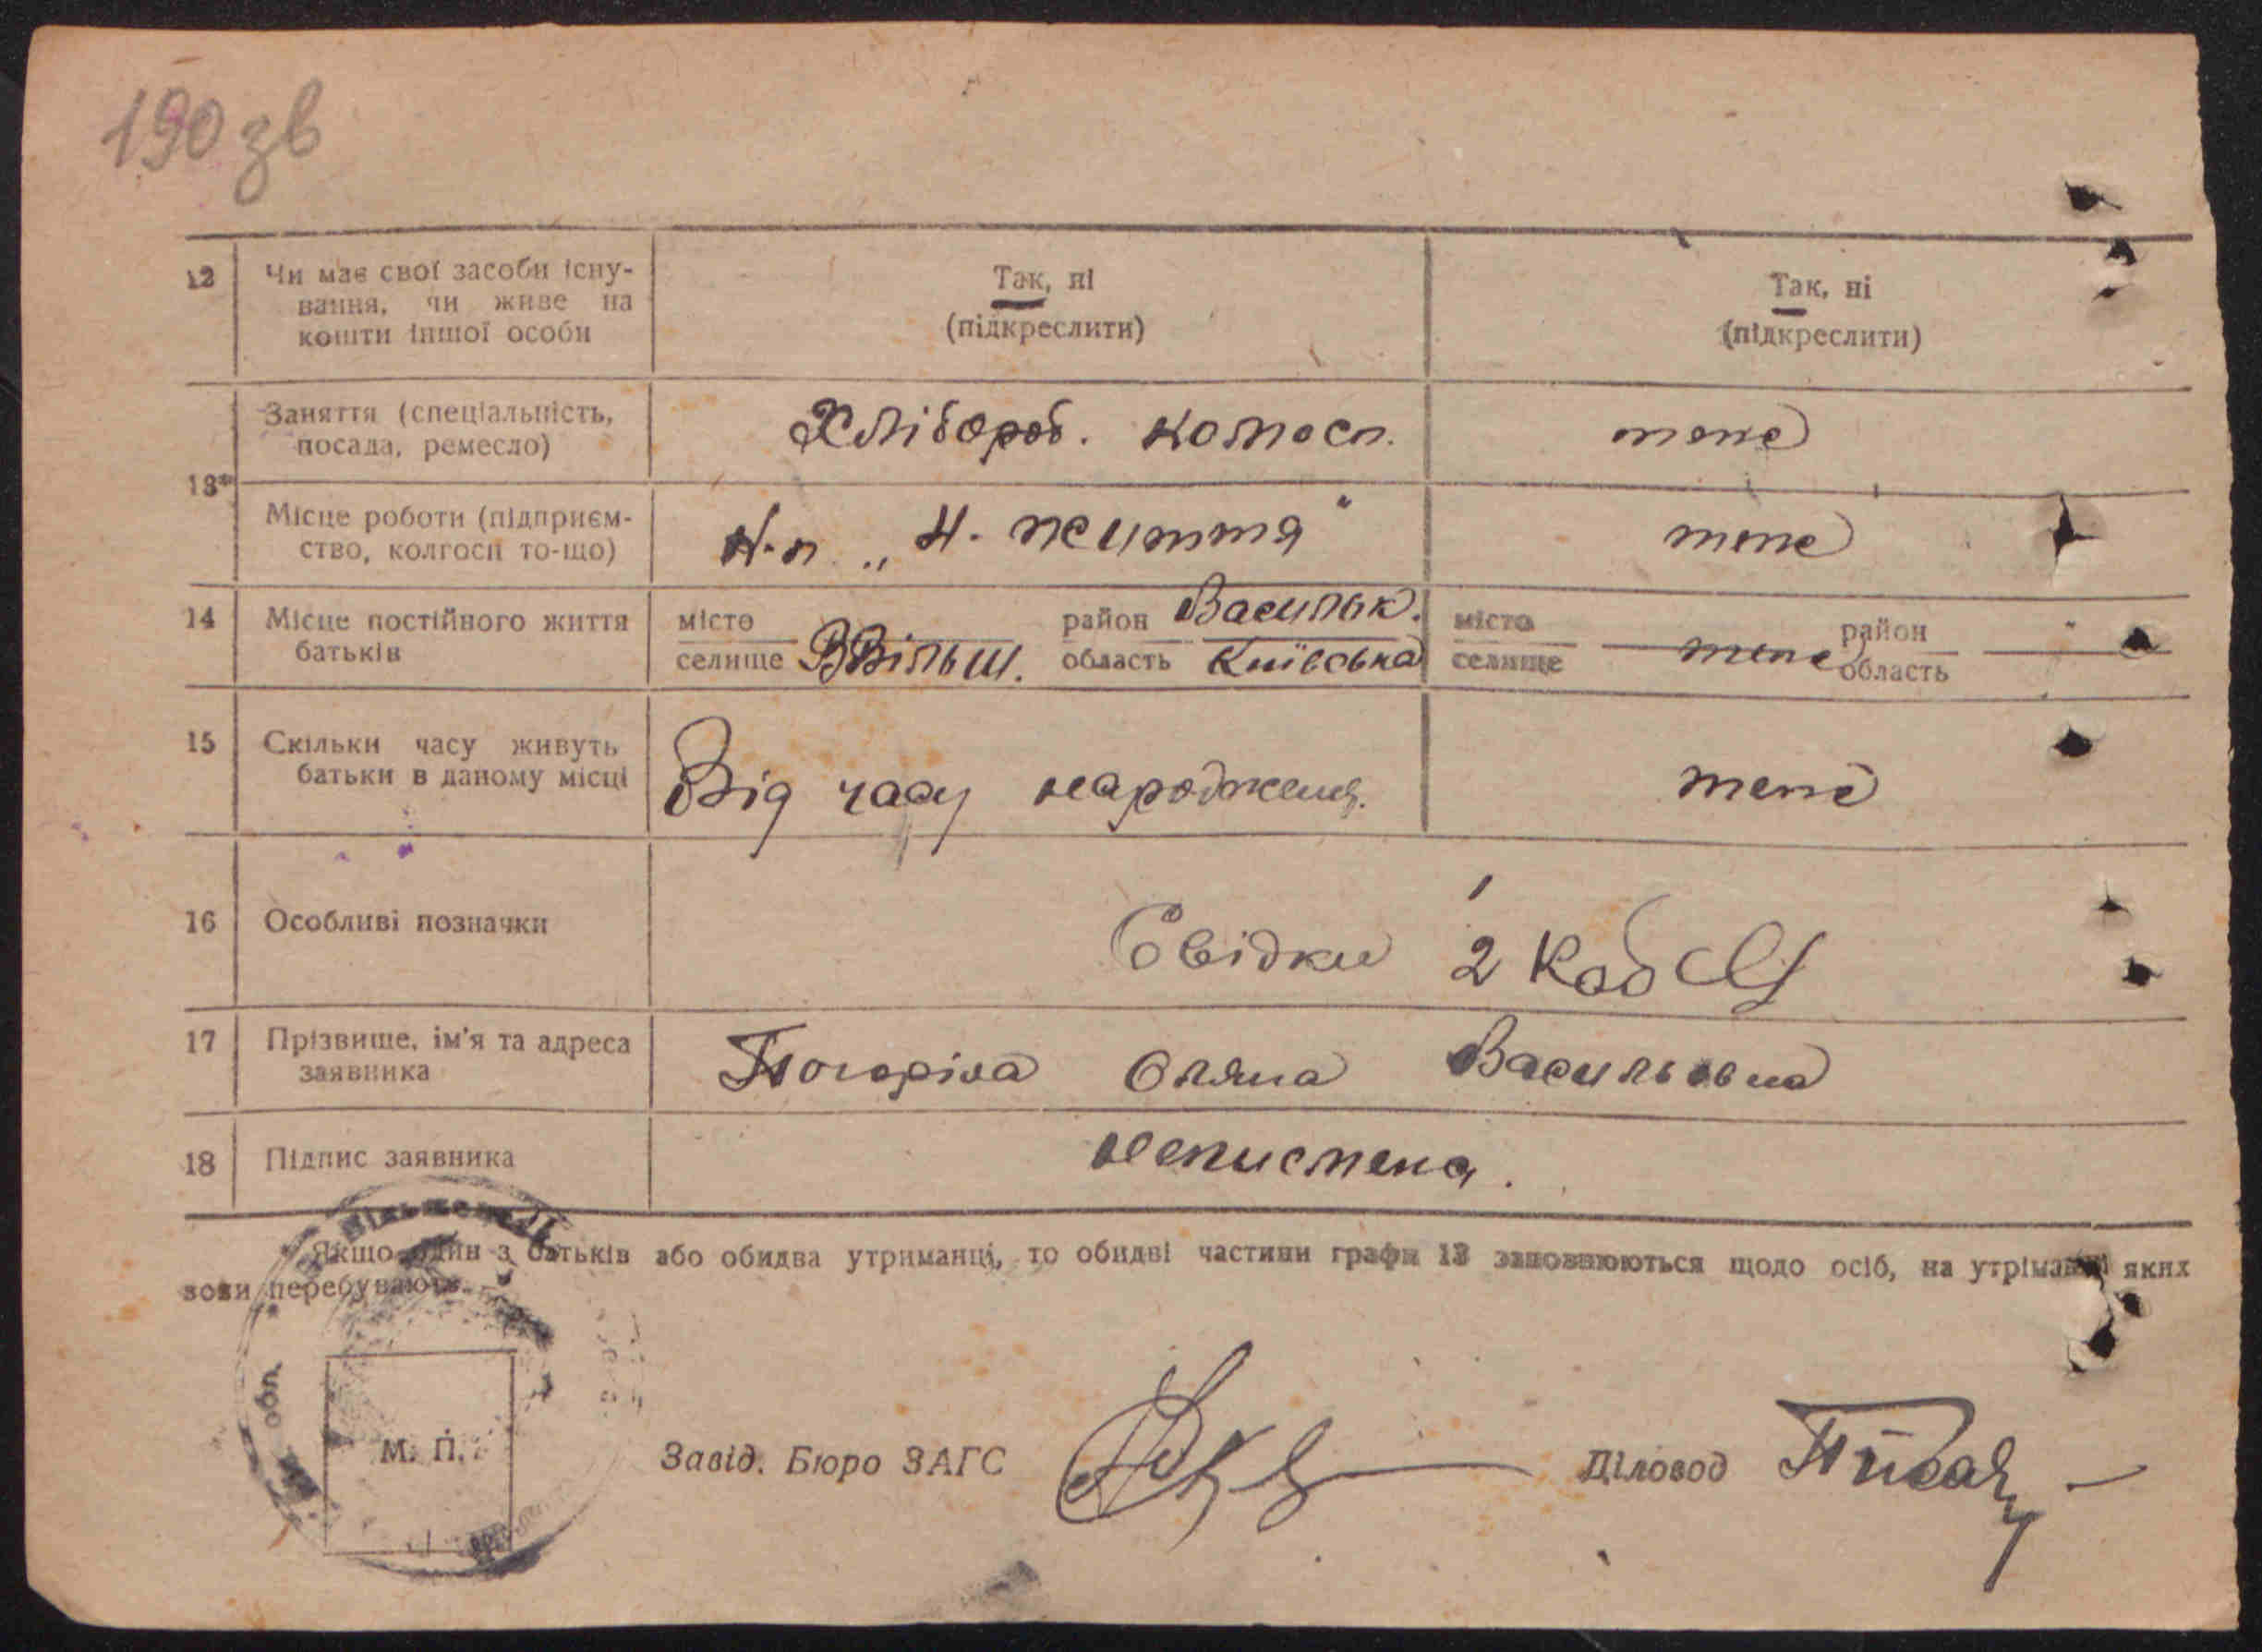 190 зв
12 Чи має свої засоби існу- Так, ні Так, ні
вання, чи живе на (підкреслити) (підкреслити)
кошти іншої особи
Заняття (спеціальність, Хлібороб. колгосп. тоже
посада, ремесло)
13*
Місце роботи (підприєм- К-п „Н. життя" тоже
ство, колгосп то-що)
14 Місце постійного життя місто район Васильк. місто район "
батьків селище ВВільш. область Київська селище тоже область
15 Скільки часу живуть Від часу народження. тоже
батьки в даному місці
16 Особливі позначки Свідки 1
2
17 Прізвище, ім'я та адреса Погоріла Оляна Васильовна
заявника
18 Підпис заявника неписмена.
Якщо один з батьків або обидва утриманці, то обидві частини графи 13 заповнюються щодо осіб, на утріманні яких
вони перебувають.
обл.
М. П.
Завід. Бюро ЗАГС Діловод